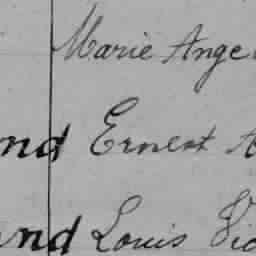 Marie Ange
nd Ernest A
nd Louis Vic